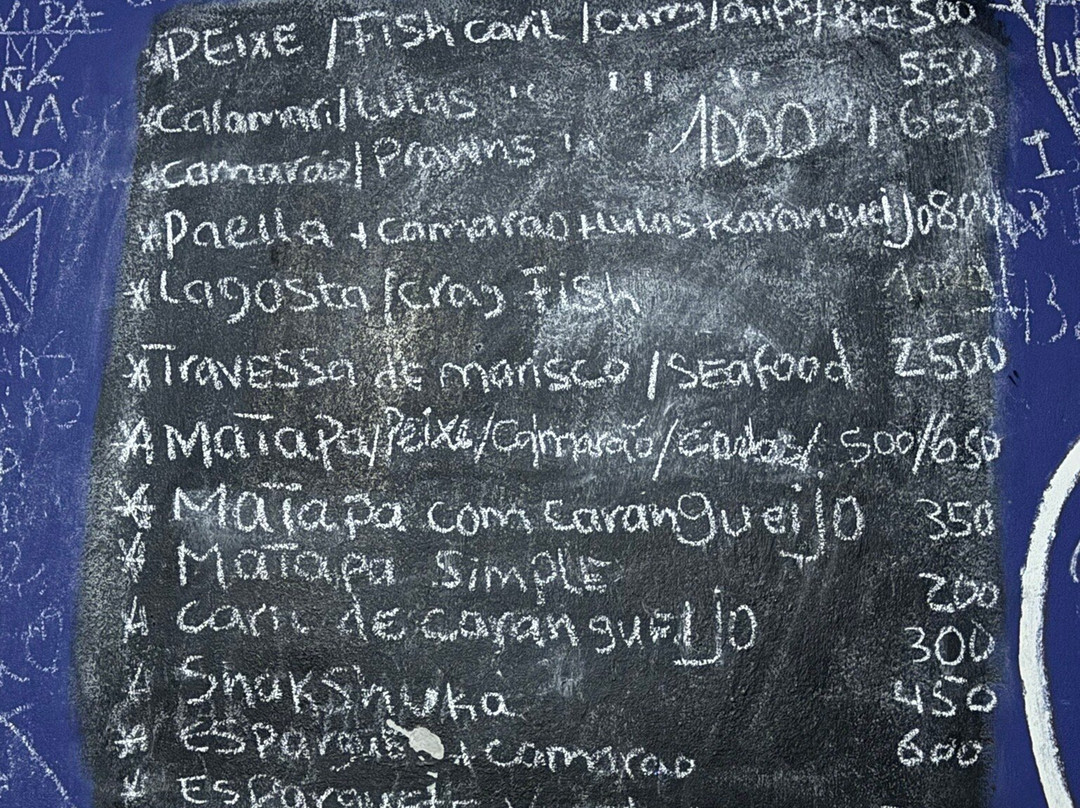 *PEixE /Fish caril /curry/chips/RICE 500
*Calamari/Lulas " " " 550
*camarão/Prawns " 1000 / 650
*Paella + camarao +lulas+carangueijo 800
*Lagosta/cray Fish 1000
*TravESSa de marisco /SEafood 2500
*MaTaPa/Peixe/Camarão/ 500/650
* MaTapa com carangueijo 350
* MaTapa SimplE 200
* caril de caranguEijo 300
* Shakshuka 450
* + camarao 600
* ESParguet
VIDA
MY
VAS
I